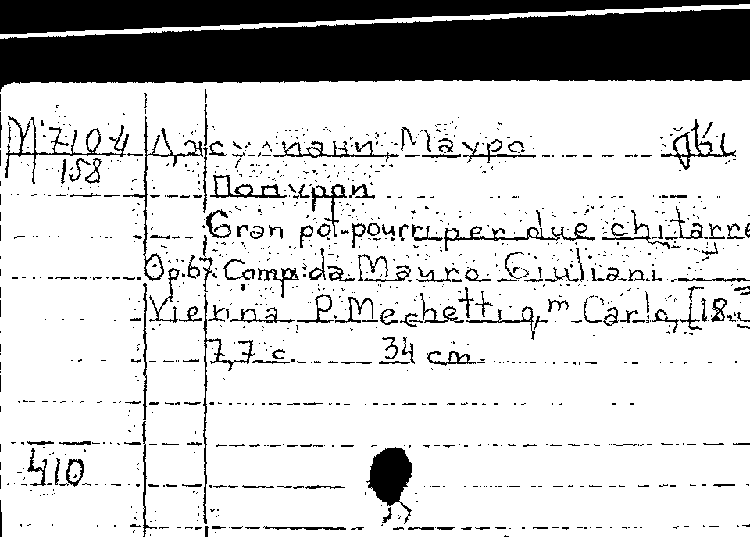 М 710-4 Джулиани, Мауро
158
Попурри
Gran pot-pourri per due chitarre
Op. 67. Comp. da Mauro Giuliani
Vienna, P. Mechetti qm Carlo, [18..
7,7 c. 34 cm.
410